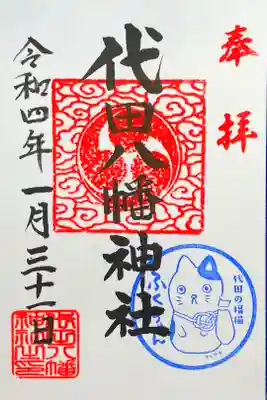 奉拝
代田八幡神社
令和四年一月三十一日
代田の福猫